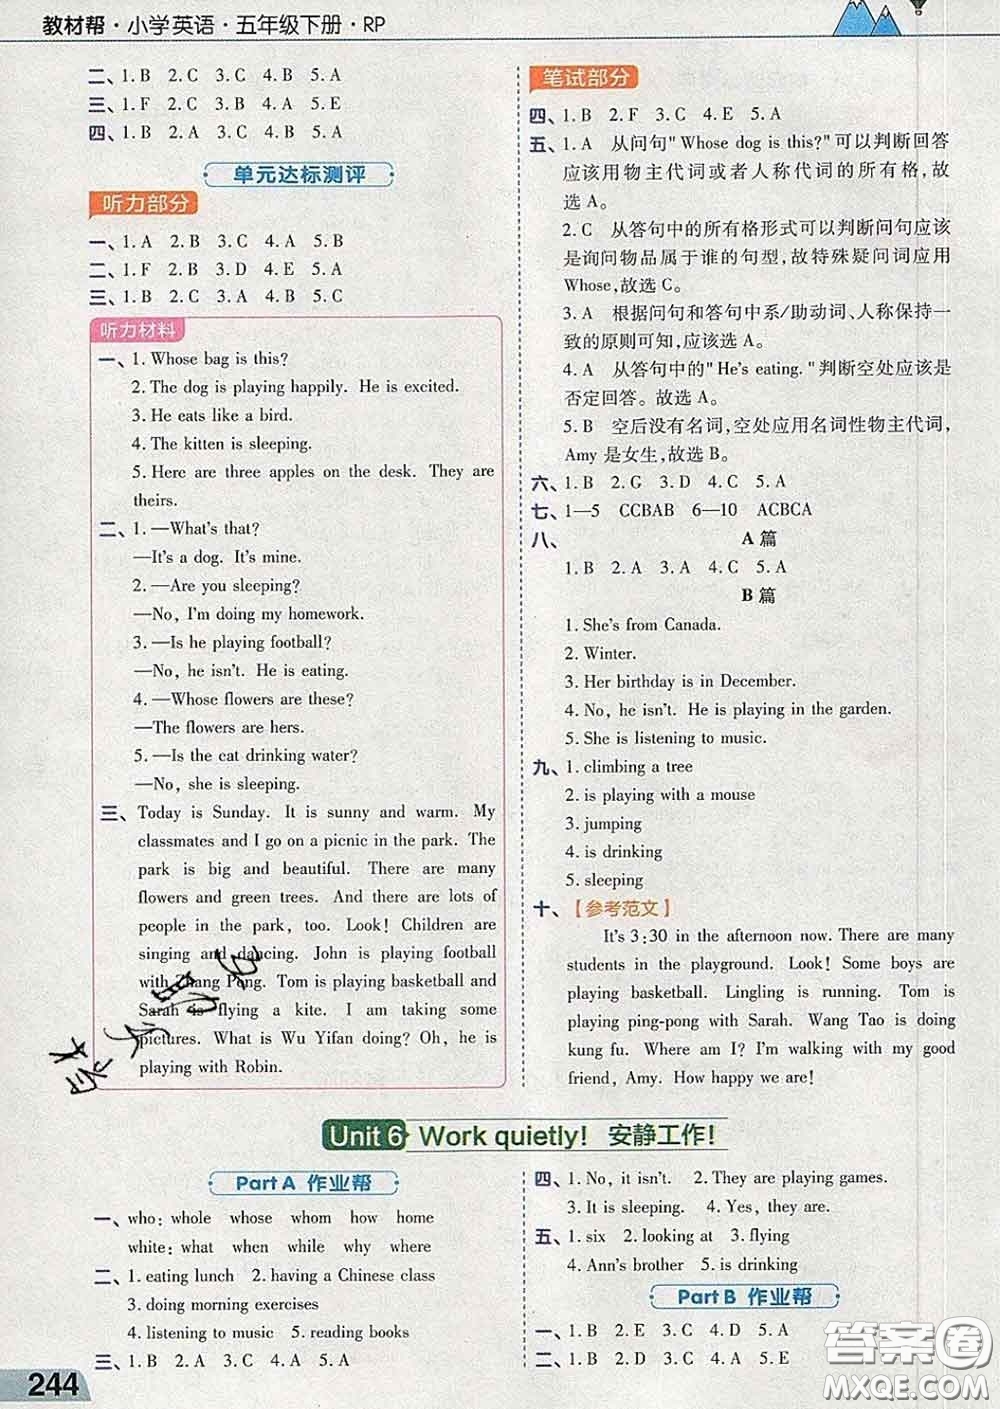 教材帮·小学英语·五年级下册·RP
二、1.B 2.C 3.C 4.B 5.A
三、1.F 2.C 3.B 4.A 5.E
四、1.B 2.A 3.C 4.B 5.C
单元达标测评
听力部分
一、1.A 2.B 3.C 4.A 5.B
二、1.F 2.B 3.D 4.E 5.A
三、1.B 2.C 3.A 4.B 5.C
听力材料
一、1. Whose bag is this?
2. The dog is playing happily. He is excited.
3. He eats like a bird.
4. The kitten is sleeping.
5. Here are three apples on the desk. They are
theirs.
二、1. —What's that?
—It's a dog. It's mine.
2. —Are you sleeping?
—No, I'm doing my homework.
3. —Is he playing football?
—No, he isn't. He is eating.
4. —Whose flowers are these?
—The flowers are hers.
5. —Is the cat drinking water?
—No, she is sleeping.
三、Today is Sunday. It is sunny and warm. My
classmates and I go on a picnic in the park. The
park is big and beautiful. There are many
flowers and green trees. And there are lots of
people in the park, too. Look! Children are
singing and dancing. John is playing football
with Zhang Peng. Tom is playing basketball and
Sarah is flying a kite. I am taking some
pictures. What is Wu Yifan doing? Oh, he is
playing with Robin.
笔试部分
四、1.B 2.F 3.C 4.E 5.A
五、1.A 从问句"Whose dog is this?"可以判断回答
应该用物主代词或者人称代词的所有格,故
选A。
2.C 从答句中的所有格形式可以判断问句应该
是询问物品属于谁的句型,故特殊疑问词应用
Whose,故选C。
3.A 根据问句和答句中系/助动词、人称保持一
致的原则可知,应该选A。
4.A 从答句中的"He's eating."判断空处应该是
否定回答。故选A。
5.B 空后没有名词,空处应用名词性物主代词,
Amy是女生,故选B。
六、1.B 2.G 3.D 4.C 5.A
七、1—5 CCBAB 6—10 ACBCA
八、 A篇
1.B 2.A 3.A 4.C 5.A
B篇
1. She's from Canada.
2. Winter.
3. Her birthday is in December.
4. No, he isn't. He is playing in the garden.
5. She is listening to music.
九、1. climbing a tree
2. is playing with a mouse
3. jumping
4. is drinking
5. sleeping
十、【参考范文】
It's 3:30 in the afternoon now. There are many
students in the playground. Look! Some boys are
playing basketball. Lingling is running. Tom is
playing ping-pong with Sarah. Wang Tao is doing
kung fu. Where am I? I'm walking with my good
friend, Amy. How happy we are!
Unit 6 Work quietly! 安静工作!
Part A 作业帮
一、who: whole whose whom how home
white: what when while why where
二、1. eating lunch 2. having a Chinese class
3. doing morning exercises
4. listening to music 5. reading books
三、1.B 2.A 3.C 4.A 5.B
四、1. No, it isn't. 2. They are playing games.
3. It is sleeping. 4. Yes, they are.
五、1. six 2. looking at 3. flying
4. Ann's brother 5. is drinking
Part B 作业帮
一、1.B 2.E 3.C 4.D 5.A
二、1.B 2.C 3.A 4.D 5.E
244
答案圈
MXQE.COM